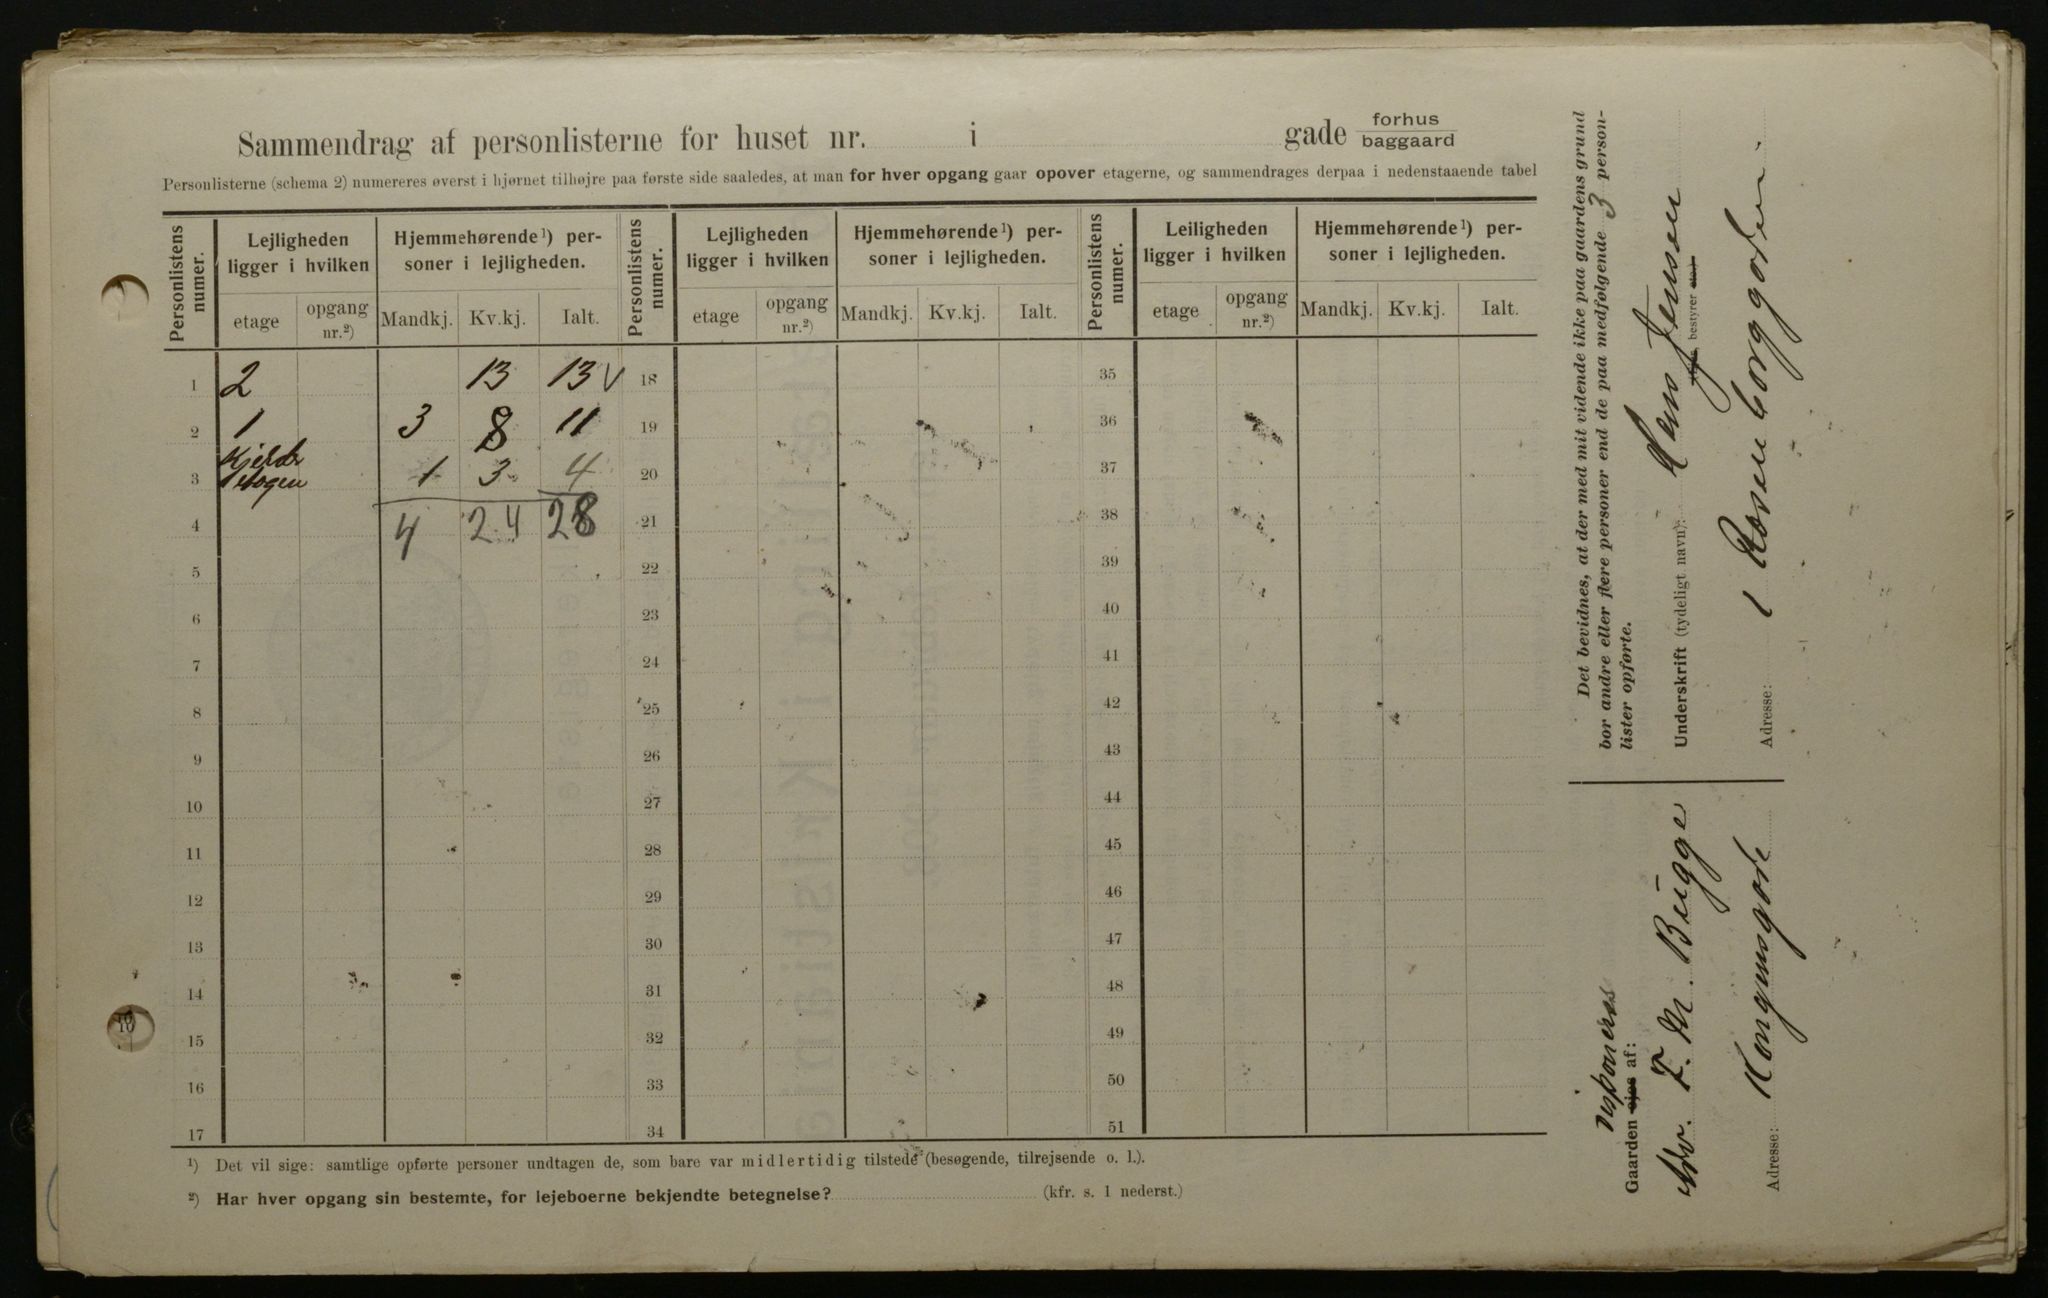 Sammendrag af personlisterne for huset nr. i gade forhus baggaard
Personlisterne (schema 2) numereres øverst i hjørnet tilhøjre paa første side saaledes, at man for hver opgang gaar opover etagerne, og sammendrages derpaa i nedenstaaende tabel
Personlistens numer. Lejligheden ligger i hvilken Hjemmehørende ¹) personer i lejligheden. Personlistens numer. Lejligheden ligger i hvilken Hjemmehørende ¹) personer i lejligheden. Personlistens numer. Leiligheden ligger i hvilken Hjemmehørende ¹) personer i lejligheden.
etage opgang nr.²) Mandkj. Kv.kj. Ialt. etage opgang nr.²) Mandkj. Kv.kj. Ialt. etage opgang nr.²) Mandkj. Kv.kj. Ialt.
1 2 13 13 V 18 35
2 1 3 8 11 19 36
3 Kjelder etagen 1 3 4 20 37
4 4 24 28 21 38
5 22 39
6 23 40
7 24 41
8 25 42
9 26 43
10 27 44
11 28 45
12 29 46
13 30 47
14 31 48
15 32 49
16 33 50
17 34 51
¹) Det vil sige: samtlige opførte personer undtagen de, som bare var midlertidig tilstede (besøgende, tilrejsende o. l.).
²) Har hver opgang sin bestemte, for lejeboerne bekjendte betegnelse? (kfr. s. 1 nederst.)
Det bevidnes, at der med mit vidende ikke paa gaardens grund
bor andre eller flere personer end de paa medfølgende 3 person-
lister opførte.
Underskrift (tydeligt navn): Jensen
bestyrer etc.)
Adresse: 1 Rosenborggaden.
disponeres
Gaarden ejes af:
Adv. F. M. Bugge
Adresse: Kongensgade
10